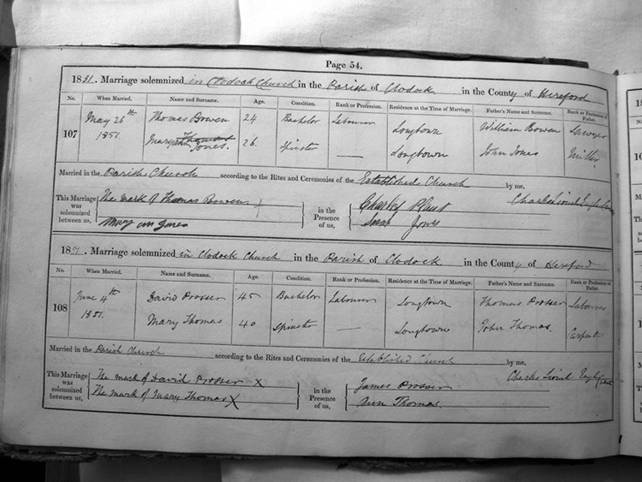 Page 54.
1851. Marriage solemnized in Clodock Church in the Parish of Clodock in the County of Hereford
No. When Married. Name and Surname. Age. Condition. Rank or Profession. Residence at the Time of Marriage. Father's Name and Surname. Rank or Profession of Father.
107 May 26th 1851. Thomas Bowen 24 Bachelor Labourer Longtown William Bowen Sawyer
Mary Ann Jones. 26. Spinster — Longtown John Jones Miller
Married in the Parish Church according to the Rites and Ceremonies of the Established Church by me,
Charles Lionel
This Marriage was solemnized between us, The mark of Thomas Bowen + in the Presence of us, Charley
Mary Ann Jones Jones
1851. Marriage solemnized in Clodock Church in the Parish of Clodock in the County of Hereford
No. When Married. Name and Surname. Age. Condition. Rank or Profession. Residence at the Time of Marriage. Father's Name and Surname. Rank or Profession of Father.
108 June 4th 1851. David Prosser 45 Bachelor Labourer Longtown Thomas Prosser Labourer
Mary Thomas 40 Spinster — Longtown John Thomas
Married in the Parish Church according to the Rites and Ceremonies of the Established Church by me,
Charles Lionel
This Marriage was solemnized between us, The mark of David Prosser X in the Presence of us, James Prosser
The mark of Mary Thomas X Ann Thomas